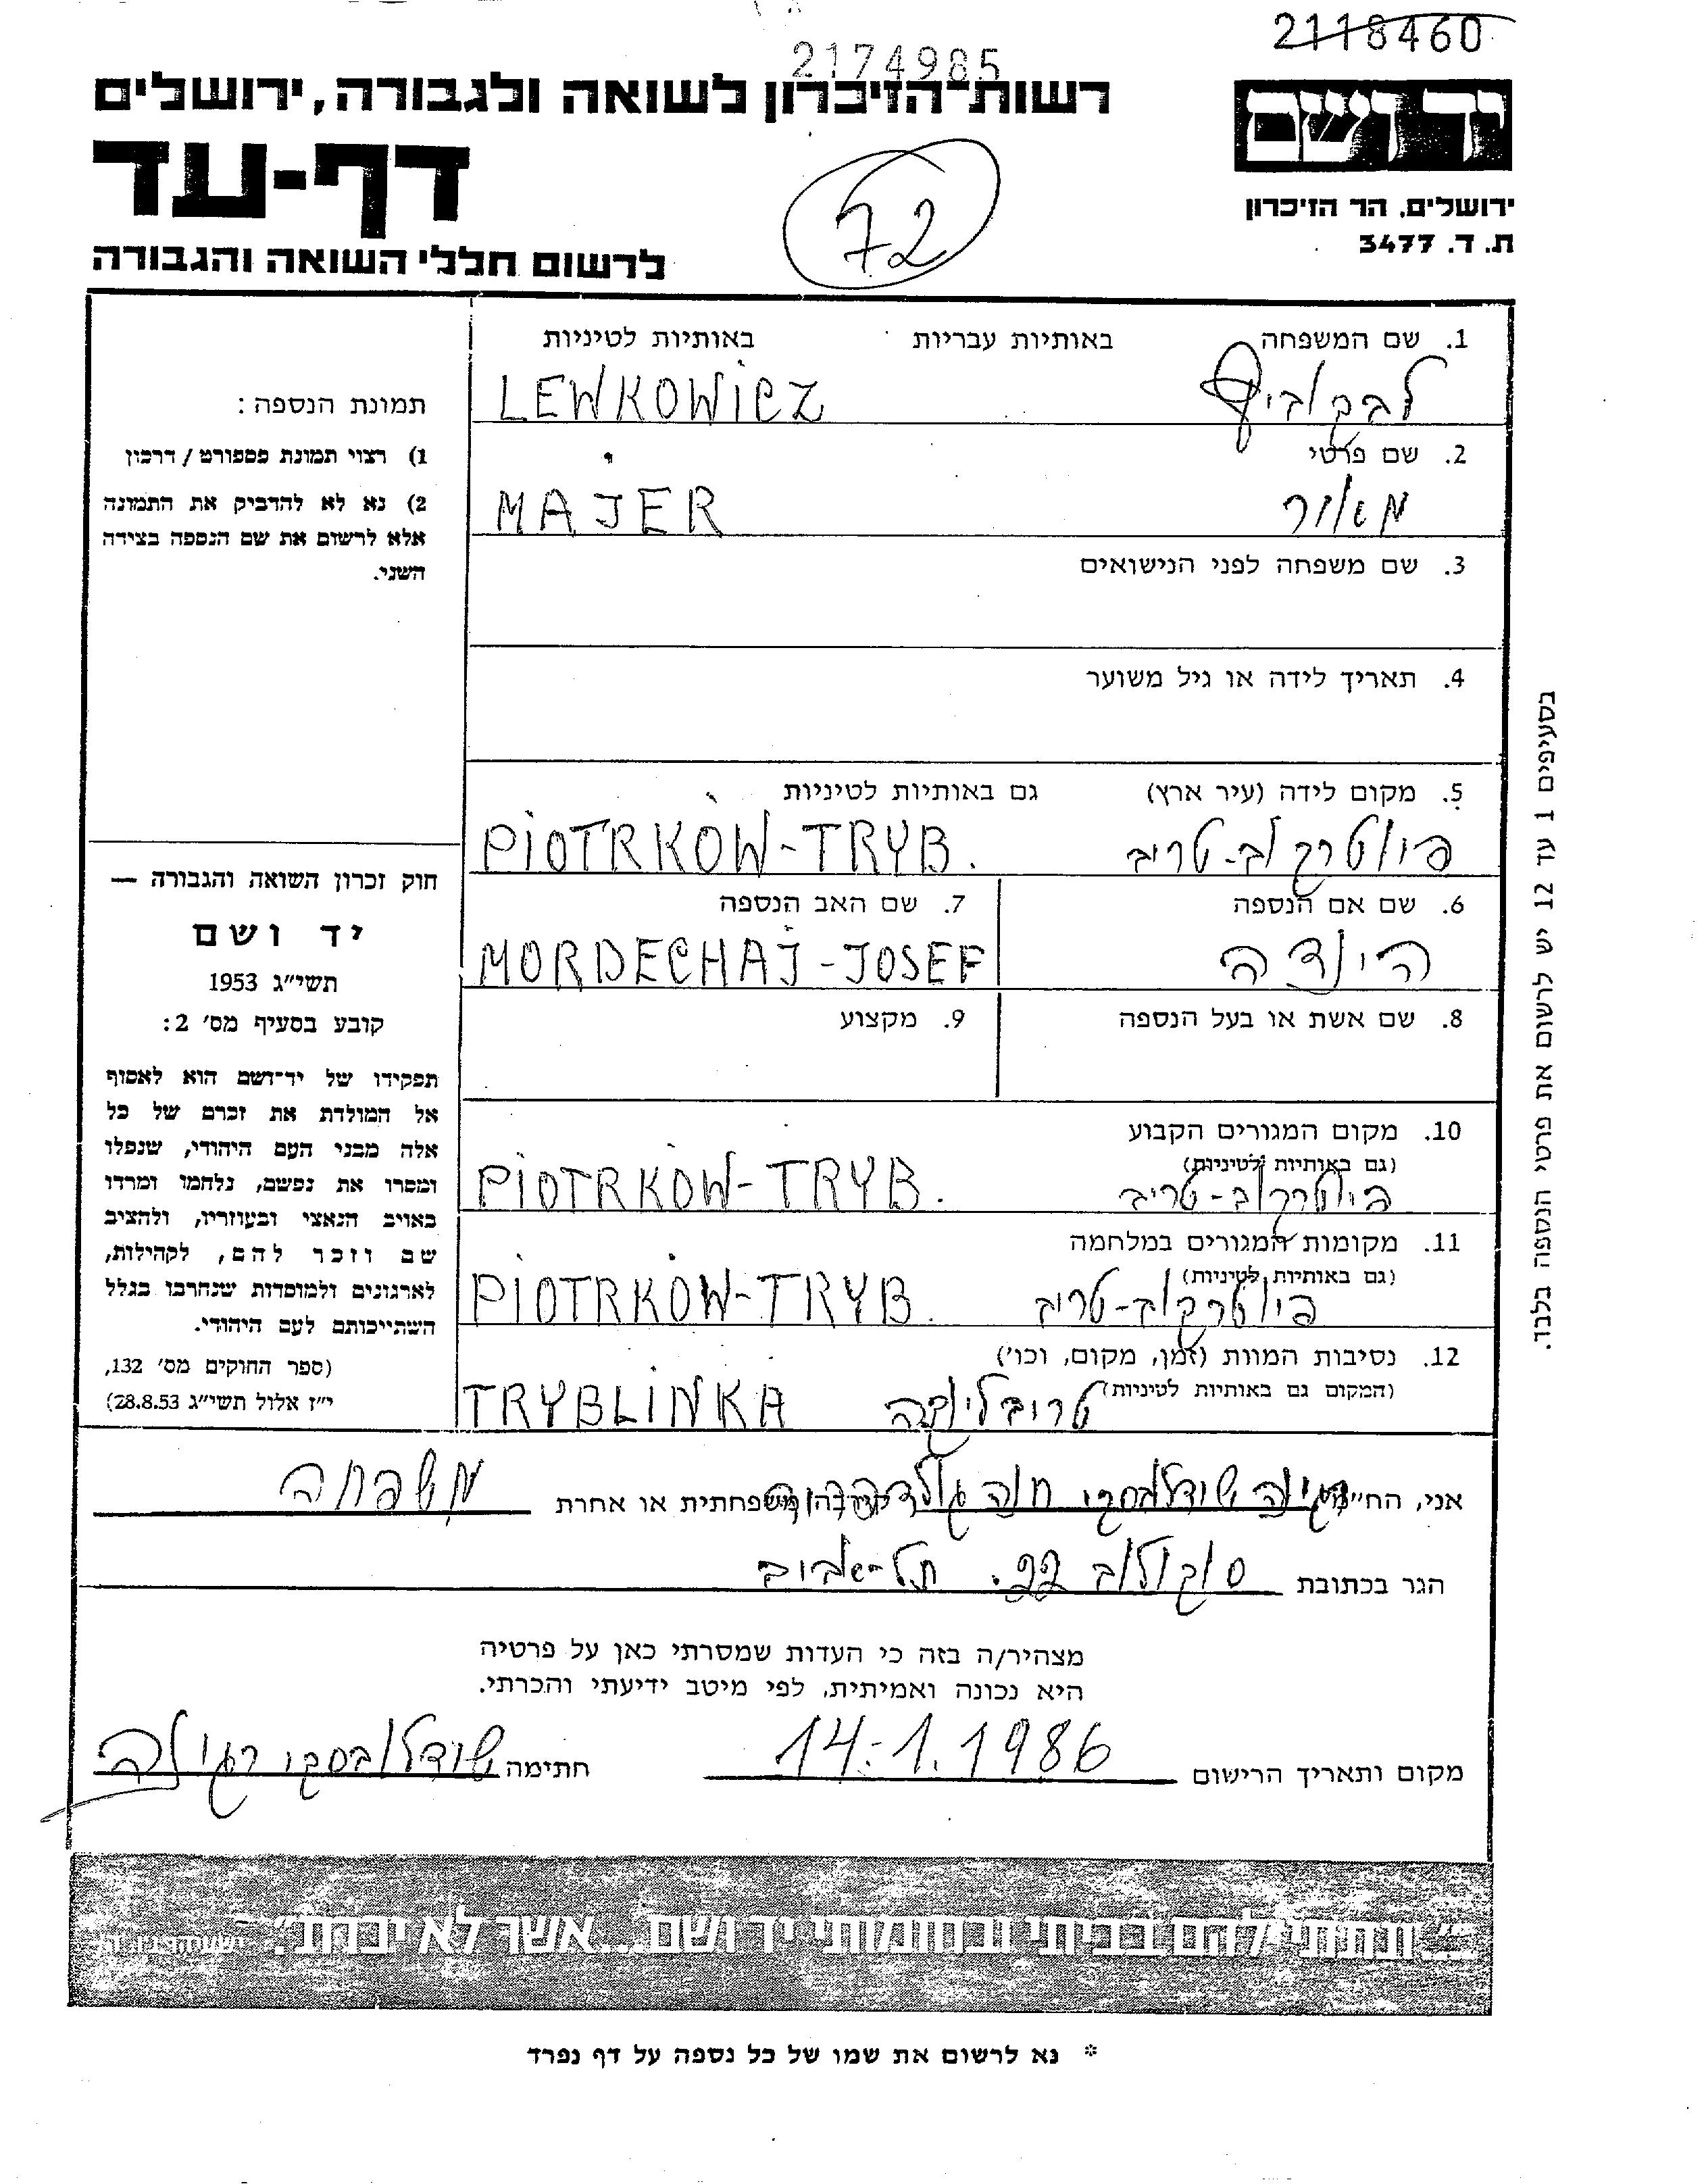 2118460
2174985
יד ושם
רשות־הזיכרון לשואה ולגבורה, ירושלים
דף-עד
לרשום חללי השואה והגבורה
72
ירושלים, הר הזיכרון
ת. ד. 3477
1. שם המשפחה באותיות עבריות באותיות לטיניות
לבקוביץ LEWKOWicZ
2. שם פרטי
מאור MAJER
3. שם משפחה לפני הנישואים
4. תאריך לידה או גיל משוער
5. מקום לידה (עיר ארץ) גם באותיות לטיניות
פיוטרקוב-טריב PiOTRKOW-TRYB.
6. שם אם הנספה 7. שם האב הנספה
הינדה MORDECHAJ-JOSEF
8. שם אשת או בעל הנספה 9. מקצוע
10. מקום המגורים הקבוע
(גם באותיות לטיניות)
פיוטרקוב-טריב PiOTRKÓW-TRYB.
11. מקומות המגורים במלחמה
(גם באותיות לטיניות)
פיוטרקוב-טריב PiOTRKÓW-TRYB.
12. נסיבות המוות (זמן, מקום, וכו')
(המקום גם באותיות לטיניות)
טריבלינקה TRYBLiNKA
תמונת הנספה :
1) רצוי תמונת פספורט / דרכון
2) נא לא להדביק את התמונה
אלא לרשום את שם הנספה בצידה
השני.
חוק זכרון השואה והגבורה —
יד ושם
תשי״ג 1953
קובע בסעיף מס׳ 2:
תפקידו של יד־ושם הוא לאסוף
אל המולדת את זכרם של כל
אלה מבני העם היהודי, שנפלו
ומסרו את נפשם, נלחמו ומרדו
באויב הנאצי ובעוזריו, ולהציב
שם וזכר להם, לקהילות,
לארגונים ולמוסדות שנחרבו בגלל
השתייכותם לעם היהודי.
(ספר החוקים מס׳ 132,
י״ז אלול תשי״ג 28.8.53)
בסעיפים 1 עד 12 יש לרשום את פרטי הנספה בלבד.
אני, הח״מ רגינה שודלובסקי חנה קירבה משפחתית או אחרת משפחה
הגר בכתובת סוקולוב 22. תל-אביב
מצהיר/ה בזה כי העדות שמסרתי כאן על פרטיה
היא נכונה ואמיתית, לפי מיטב ידיעתי והכרתי.
מקום ותאריך הרישום 14.1.1986 חתימה שודלובסקי רגינה
״...ונתתי להם בביתי ובחומותי יד ושם...אשר לא יכרת״.
* נא לרשום את שמו של כל נספה על דף נפרד